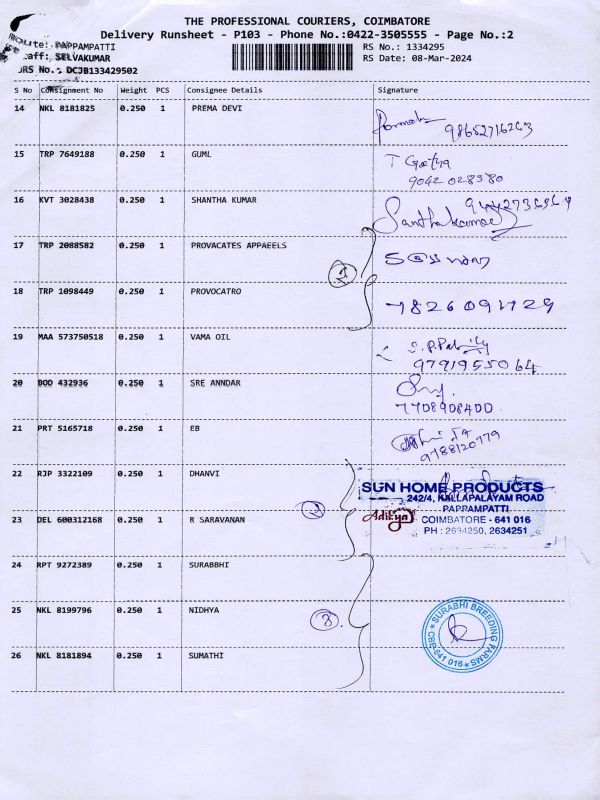 THE PROFESSIONAL COURIERS, COIMBATORE
Delivery Runsheet - P103 - Phone No.:0422-3505555 - Page No.:2
Route: PAPPAMPATTI
Staff: SELVAKUMAR
DRS No.: DCJB133429502
RS No.: 1334295
RS Date: 08-Mar-2024
S No Consignment No Weight PCS Consignee Details Signature
14 NKL 8181825 0.250 1 PREMA DEVI
98652716263
15 TRP 7649188 0.250 1 GUML
T Geetha
9042028380
16 KVT 3028438 0.250 1 SHANTHA KUMAR
Santhakumar
17 TRP 2088582 0.250 1 PROVACATES APPAEELS
1
18 TRP 1098449 0.250 1 PROVOCATRO
19 MAA 573750518 0.250 1 VAMA OIL
9791955064
20 BOD 432936 0.250 1 SRE ANNDAR
7708908400
21 PRT 5165718 0.250 1 EB
9788120779
22 RJP 3322109 0.250 1 DHANVI
SUN HOME PRODUCTS
242/4, KALLAPALAYAM ROAD
PAPPAMPATTI
COIMBATORE - 641 016
PH : 2634250, 2634251
2
Aditya
23 DEL 600312168 0.250 1 R SARAVANAN
24 RPT 9272389 0.250 1 SURABBHI
25 NKL 8199796 0.250 1 NIDHYA
3.
SURABHI BREEDING FARMS
CBE-641 016
26 NKL 8181894 0.250 1 SUMATHI